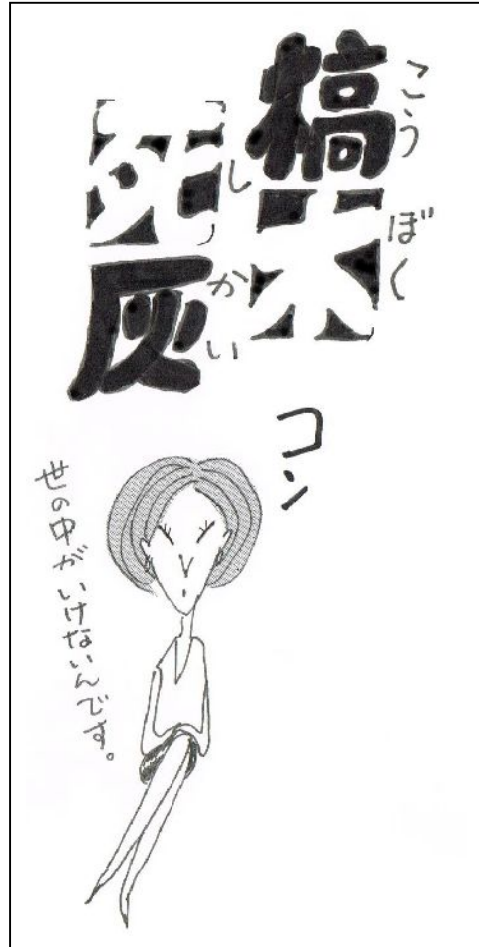 槁木
こうぼく
死灰
しかい
コン
世の中がいけないんです。